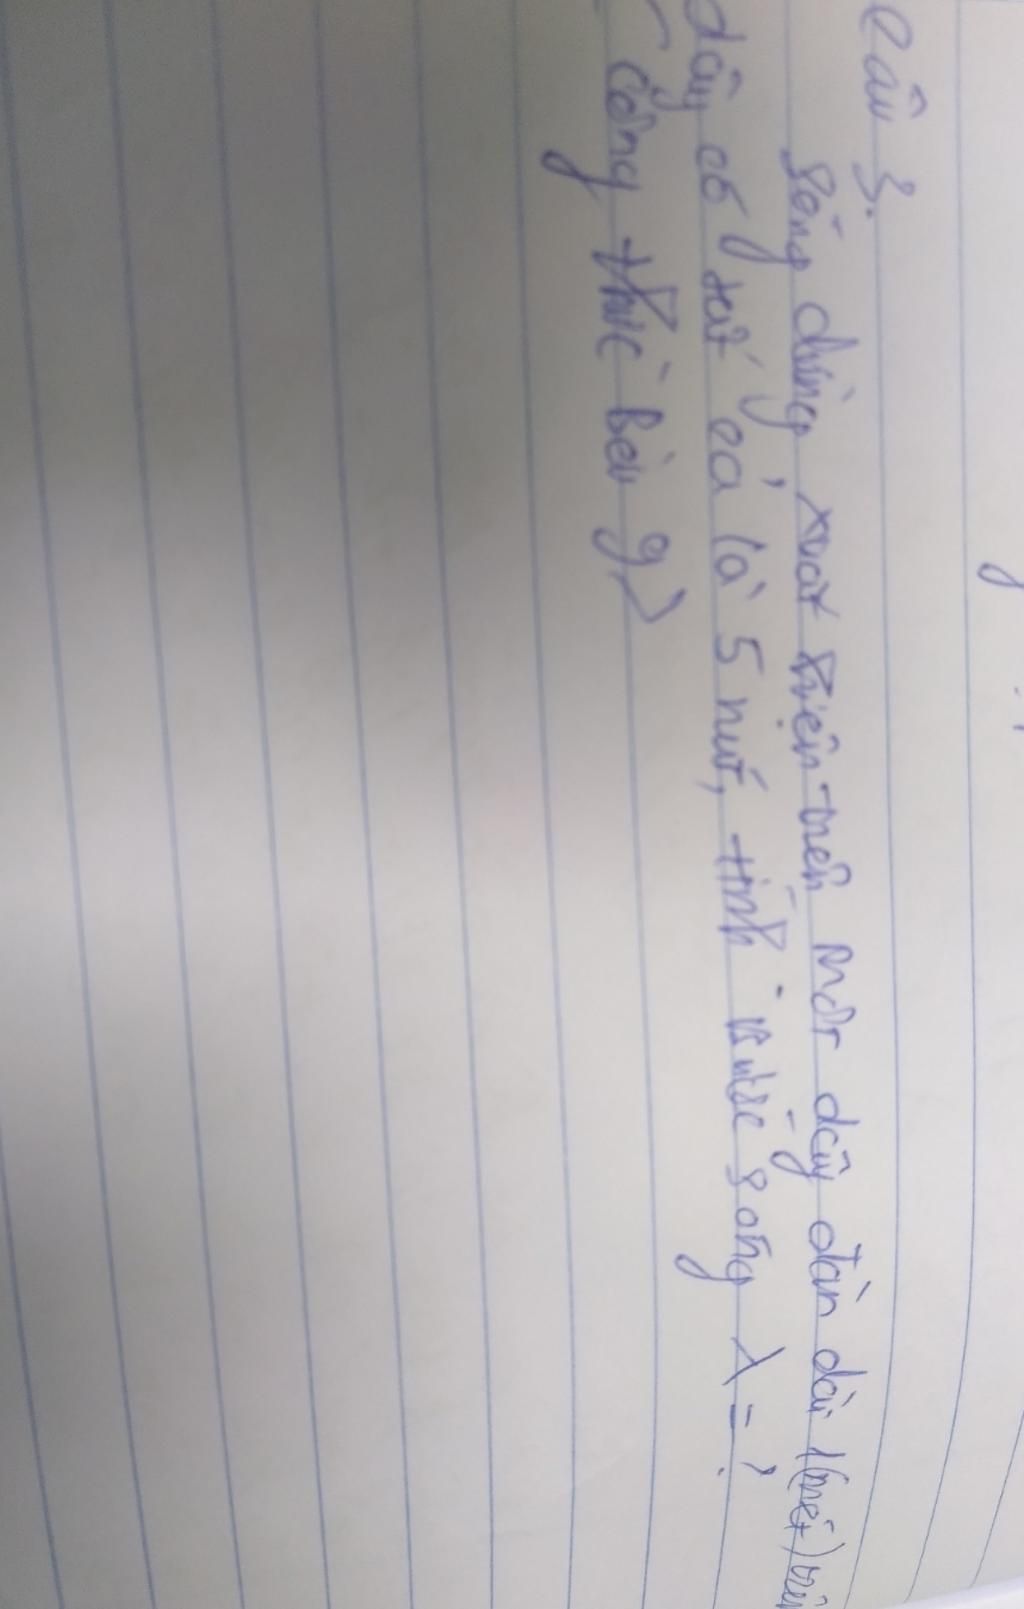 Câu 3.
Sóng dừng xuất hiện trên một dây đàn dài 1(mét) trên
dây có tất cả là 5 nút, tính bước sóng λ = ?
(công thức bên